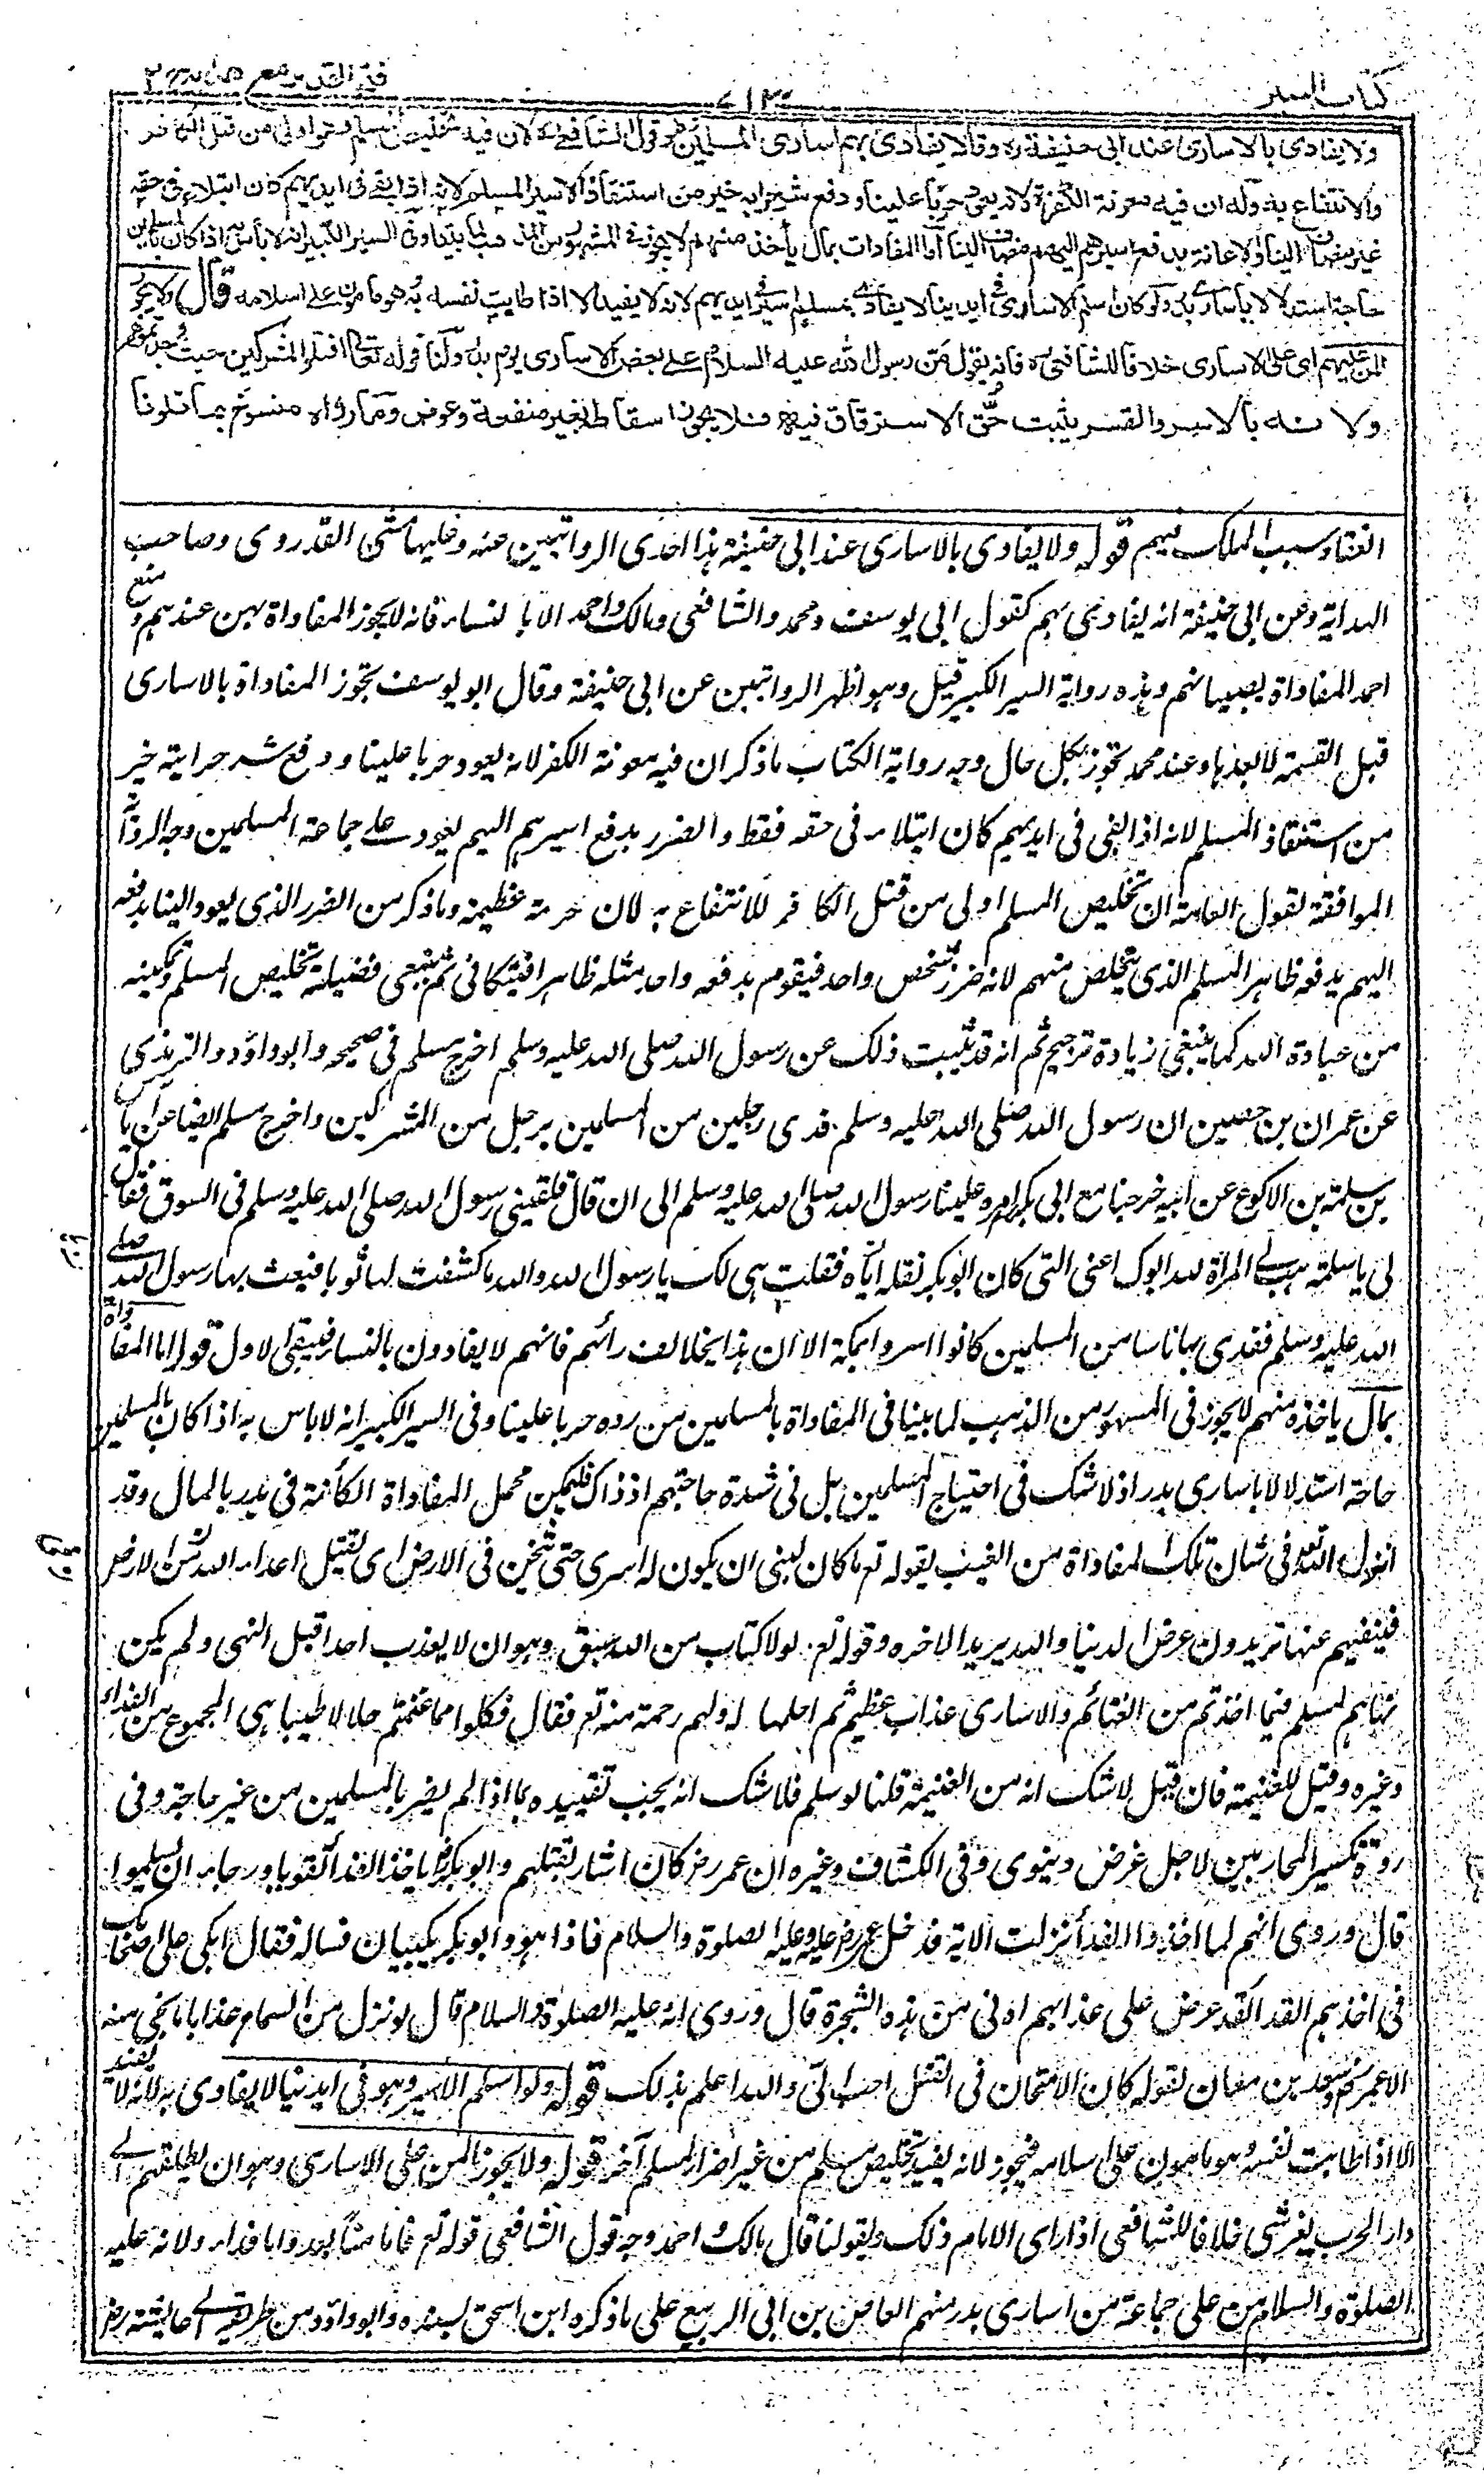 كتاب السير
فتح القدير مع هدايه ج ٢
ولا يفادى بالاسارى عند ابى حنيفة ره وقالا يفادى بهم اسارى المسلمين وهو قول الشافعي ره لان فيه تخليص المسلم وهو اولى من قتل الكافر
والانتفاع به وله ان فيه معونة الكفرة لانه يعود حربا علينا ودفع شر حرابه خير من استنقاذ الاسير المسلم لانه اذا بقى فى ايديهم كان ابتلاء فى حقه
غير مضاف الينا والاعانة بدفع اسيرهم اليهم مضاف الينا اما المفادات بمال يأخذ منهم لا يجوز فى المشهور من المذهب لما بينا وفى السير الكبير انه لا بأس به اذا كان بالمسلمين
حاجة استدلالا باسارى بدر ولو كان اسلم الاسارى فى ايدينا لا يفادى بمسلم اسير فى ايديهم لانه لا يفيد الا اذا طابت نفسه به وهو مامون على اسلامه قال ولا يجوز
المن عليهم اى على الاسارى خلافا للشافعى ره فانه يقول من رسول الله عليه السلام على بعض الاسارى يوم بدر ولنا قوله تعالى اقتلوا المشركين حيث وجدتموهم
ولانه بالاسر والقسر يثبت حق الاسترقاق فيه فلا يجوز اسقاطه بغير منفعة وعوض وما رواه منسوخ بما تلونا
انعقاد سبب الملك فيهم قوله ولا يفادى بالاسارى عند ابى حنيفة هذا احدى الروايتين عنه وعليها مشى القدورى وصاحب
الهداية وعن ابى حنيفة انه يفادى بهم كقول ابى يوسف ومحمد والشافعى ومالك واحمد الا بالنساء فانه لا يجوز المفاداة بهن عندهم ومنع
احمد المفاداة بصبيانهم وهذه رواية السير الكبير قيل وهو اظهر الروايتين عن ابى حنيفة وقال ابو يوسف تجوز المفاداة بالاسارى
قبل القسمة لا بعدها وعند محمد تجوز بكل حال وجه رواية الكتاب ما ذكر ان فيه معونة الكفر لانه يعود حربا علينا ودفع شر حرابته خير
من استنقاذ المسلم لانه اذا بقى فى ايديهم كان ابتلاء فى حقه فقط والضرر بدفع اسيرهم اليهم يعود على جماعة المسلمين وجه الرواية
الموافقة لقول العامة ان تخليص المسلم اولى من قتل الكافر للانتفاع به لان حرمته عظيمة وما ذكر من الضرر الذى يعود الينا بدفعه
اليهم يدفعه ظاهرا المسلم الذى يتخلص منهم لانه ضرر شخص واحد فيقوم بدفعه واحد مثله ظاهرا فيتكافئ ثم يبقى فضيلة تخليص المسلم وتمكينه
من عبادة الله كما ينبغى زيادة ترجيح ثم انه قد ثبت ذلك عن رسول الله صلى الله عليه وسلم اخرج مسلم فى صحيحه وابو داؤد والترمذى
عن عمران بن حصين ان رسول الله صلى الله عليه وسلم فدى رجلين من المسلمين برجل من المشركين واخرج مسلم ايضا عن اياس
بن سلمة بن الاكوع عن ابيه خرجنا مع ابى بكر امره علينا رسول الله صلى الله عليه وسلم الى ان قال فلقينى رسول الله صلى الله عليه وسلم فى السوق فقال
لى يا سلمة هب لى المرأة لله ابوك اعنى التى كان ابو بكر نفله اياه فقلت هى لك يا رسول الله والله ما كشفت لها ثوبا فبعث بها رسول الله صلى
الله عليه وسلم ففدى بها ناسا من المسلمين كانوا اسروا بمكة الا ان هذا يخالف رائهم فانهم لا يفادون بالنساء فيبقى الاول قوله اما المفاداة
بمال ياخذه منهم لا يجوز فى المشهور من المذهب لما بينا فى المفاداة بالمسلمين من رده حربا علينا وفى السير الكبير انه لا باس به اذا كان بالمسلمين
حاجة استدلالا باسارى بدر اذ لا شك فى احتياج المسلمين بل فى شدة حاجتهم اذ ذاك فليكن محمل المفاداة الكائنة فى بدر بالمال وقد
انزل الله تعالى فى شان تلك المفاداة من العيب بقوله تع ما كان لنبى ان يكون له اسرى حتى يثخن فى الارض اى تقتيل اعداء الله من الارض
فينفيهم عنها تريدون عرض الدنيا والله يريد الاخره وقوله تع لولا كتاب من الله سبق وهو ان لا يعذب احدا قبل النهى ولم يكن
نهاهم لمسلم فيما اخذتم من الغنائم والاسارى عذاب عظيم ثم احلها له ولهم رحمة منه تع فقال فكلوا مما غنمتم حلالا طيبا هى المجموع من الفداء
وغيره وقيل للغنيمة فان قيل لا شك انه من الغنيمة قلنا لو سلم فلا شك انه يجب تقييده بما اذا لم يضر بالمسلمين من غير حاجة وفى
رده تكثير المحاربين لاجل غرض دنيوى وفى الكشاف وغيره ان عمر رض كان اشار بقتلهم وابو بكر رض باخذ الفداء تقويا ورجاء ان يسلموا
قال وروى انهم لما اخذوا الفداء نزلت الاية فدخل عمر رض عليه وعليه الصلوة والسلام فاذا هو وابو بكر يبكيان فساله فقال ابكى على اصحابك
فى اخذهم الفداء لقد عرض على عذابهم ادنى من هذه الشجرة قال وروى انه عليه الصلوة والسلام قال لو نزل من السماء عذاب ما نجى منه
الا عمر وسعد بن معاذ لقوله كان الاثخان فى القتل احب الى والله اعلم بذلك قوله ولو اسلم الاسير وهو فى ايدينا لا يفادى به لانه لا يفيد
الا اذا طابت نفسه وهو مامون على اسلامه فيجوز لانه يفيد تخليص مسلم من غير اضرار لمسلم آخر قوله ولا يجوز المن على الاسارى وهو ان يطلقهم الى
دار الحرب بغير شئ خلافا للشافعى اذا راى الامام ذلك وبقولنا قال مالك واحمد وجه قول الشافعى قوله تع فاما منا بعد واما فداء ولانه عليه
الصلوة والسلام من على جماعة من اسارى بدر منهم العاص بن ابى الربيع على ما ذكره ابن اسحق بسنده وابو داؤد من طريقه الى عائشة رض